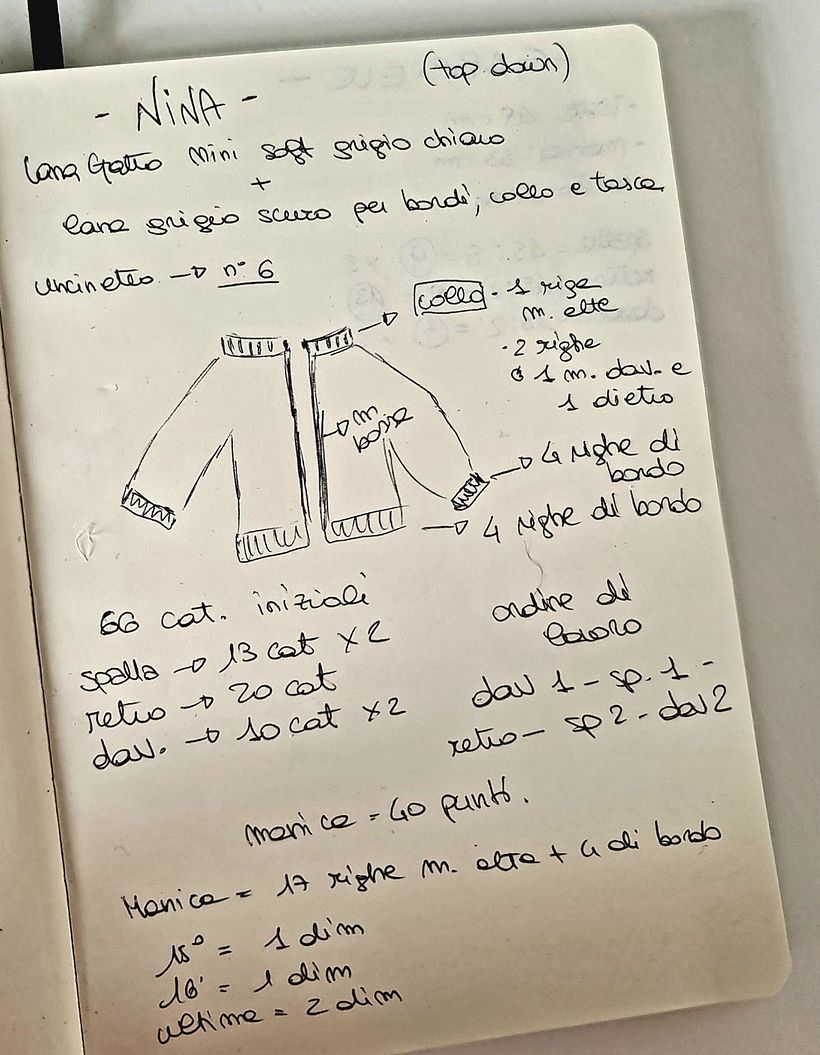 (top down)
- NINA -
Lana Gatto Mini soft grigio chiaro
+
lana grigio scuro per bordi, collo e tasca
uncinetto → n° 6
collo - 1 riga
m. alte
· 2 righe
1 m. dav. e
1 dietro
m. basse
4 righe di
bordo
4 righe di bordo
66 cat. iniziali
spalla → 13 cat x2
retro → 20 cat
dav. → 10 cat x2
ordine di
lavoro
dav 1 - sp. 1 -
retro - sp 2 - dav 2
manica = 40 punti.
Manica = 17 righe m. alte + 4 di bordo
15° = 1 dim
16° = 1 dim
ultima = 2 dim